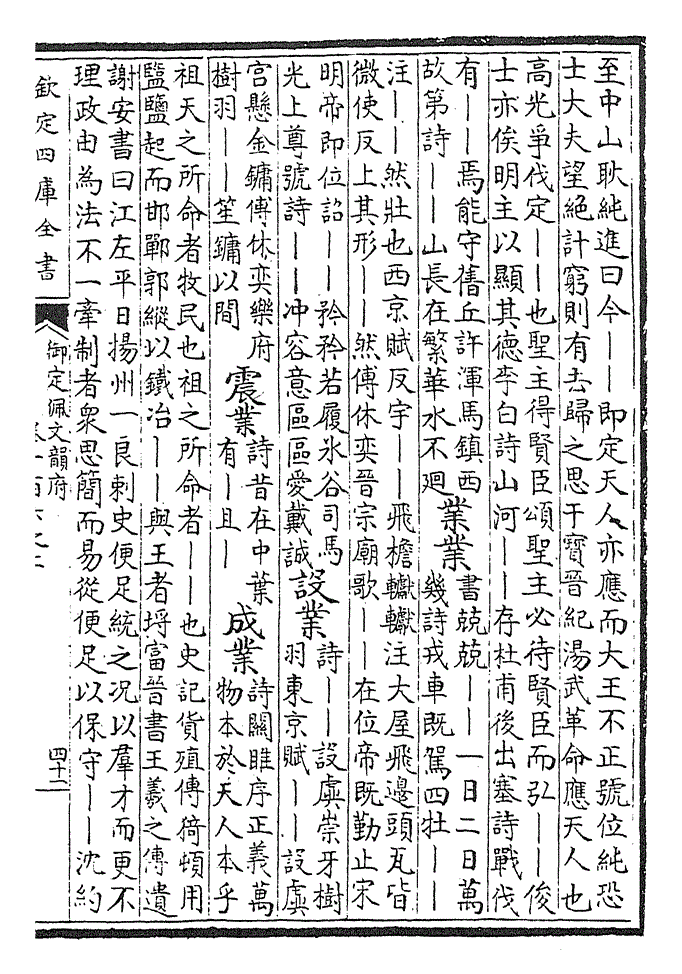 至中山耿純進曰今丨丨即定天人亦應而大王不正號位純恐
士大夫望絕計窮則有去歸之思干寶晉紀湯武革命應天人也
高光爭伐定丨丨也聖主得賢臣頌聖主必待賢臣而弘丨丨俊
士亦俟明主以顯其德李白詩山河丨丨存杜甫後出塞詩戰伐
有丨丨焉能守舊丘許渾馬鎮西
故第詩丨丨山長在繁華水不迴
業業
書兢兢丨丨一日二日萬
幾詩戎車既駕四牡丨丨
注丨丨然壯也西京賦反宇丨丨飛檐注大屋飛邊頭瓦皆
微使反上其形丨丨然傅休奕晉宗廟歌丨丨在位帝既勤止宋
明帝即位詔丨丨矜矜若履氷谷司馬
光上尊號詩丨丨冲容意區區愛戴誠
設業
詩丨丨設虡崇牙樹
羽東京賦丨丨設虡
宮懸金鏞傅休奕樂府
樹羽丨丨笙鏞以間
震業
詩昔在中葉
有丨且丨
成業
詩關雎序正義萬
物本於天人本乎
祖天之所命者牧民也祖之所命者丨丨也史記貨殖傳猗頓用
盬鹽起而邯鄲郭縱以鐵冶丨丨與王者埒富晉書王羲之傳遺
謝安書曰江左平日揚州一良刺史便足統之况以羣才而更不
理政由為法不一牽制者衆思簡而易從便足以保守丨丨沈約
欽定四庫全書
御定佩文韻府
四十二